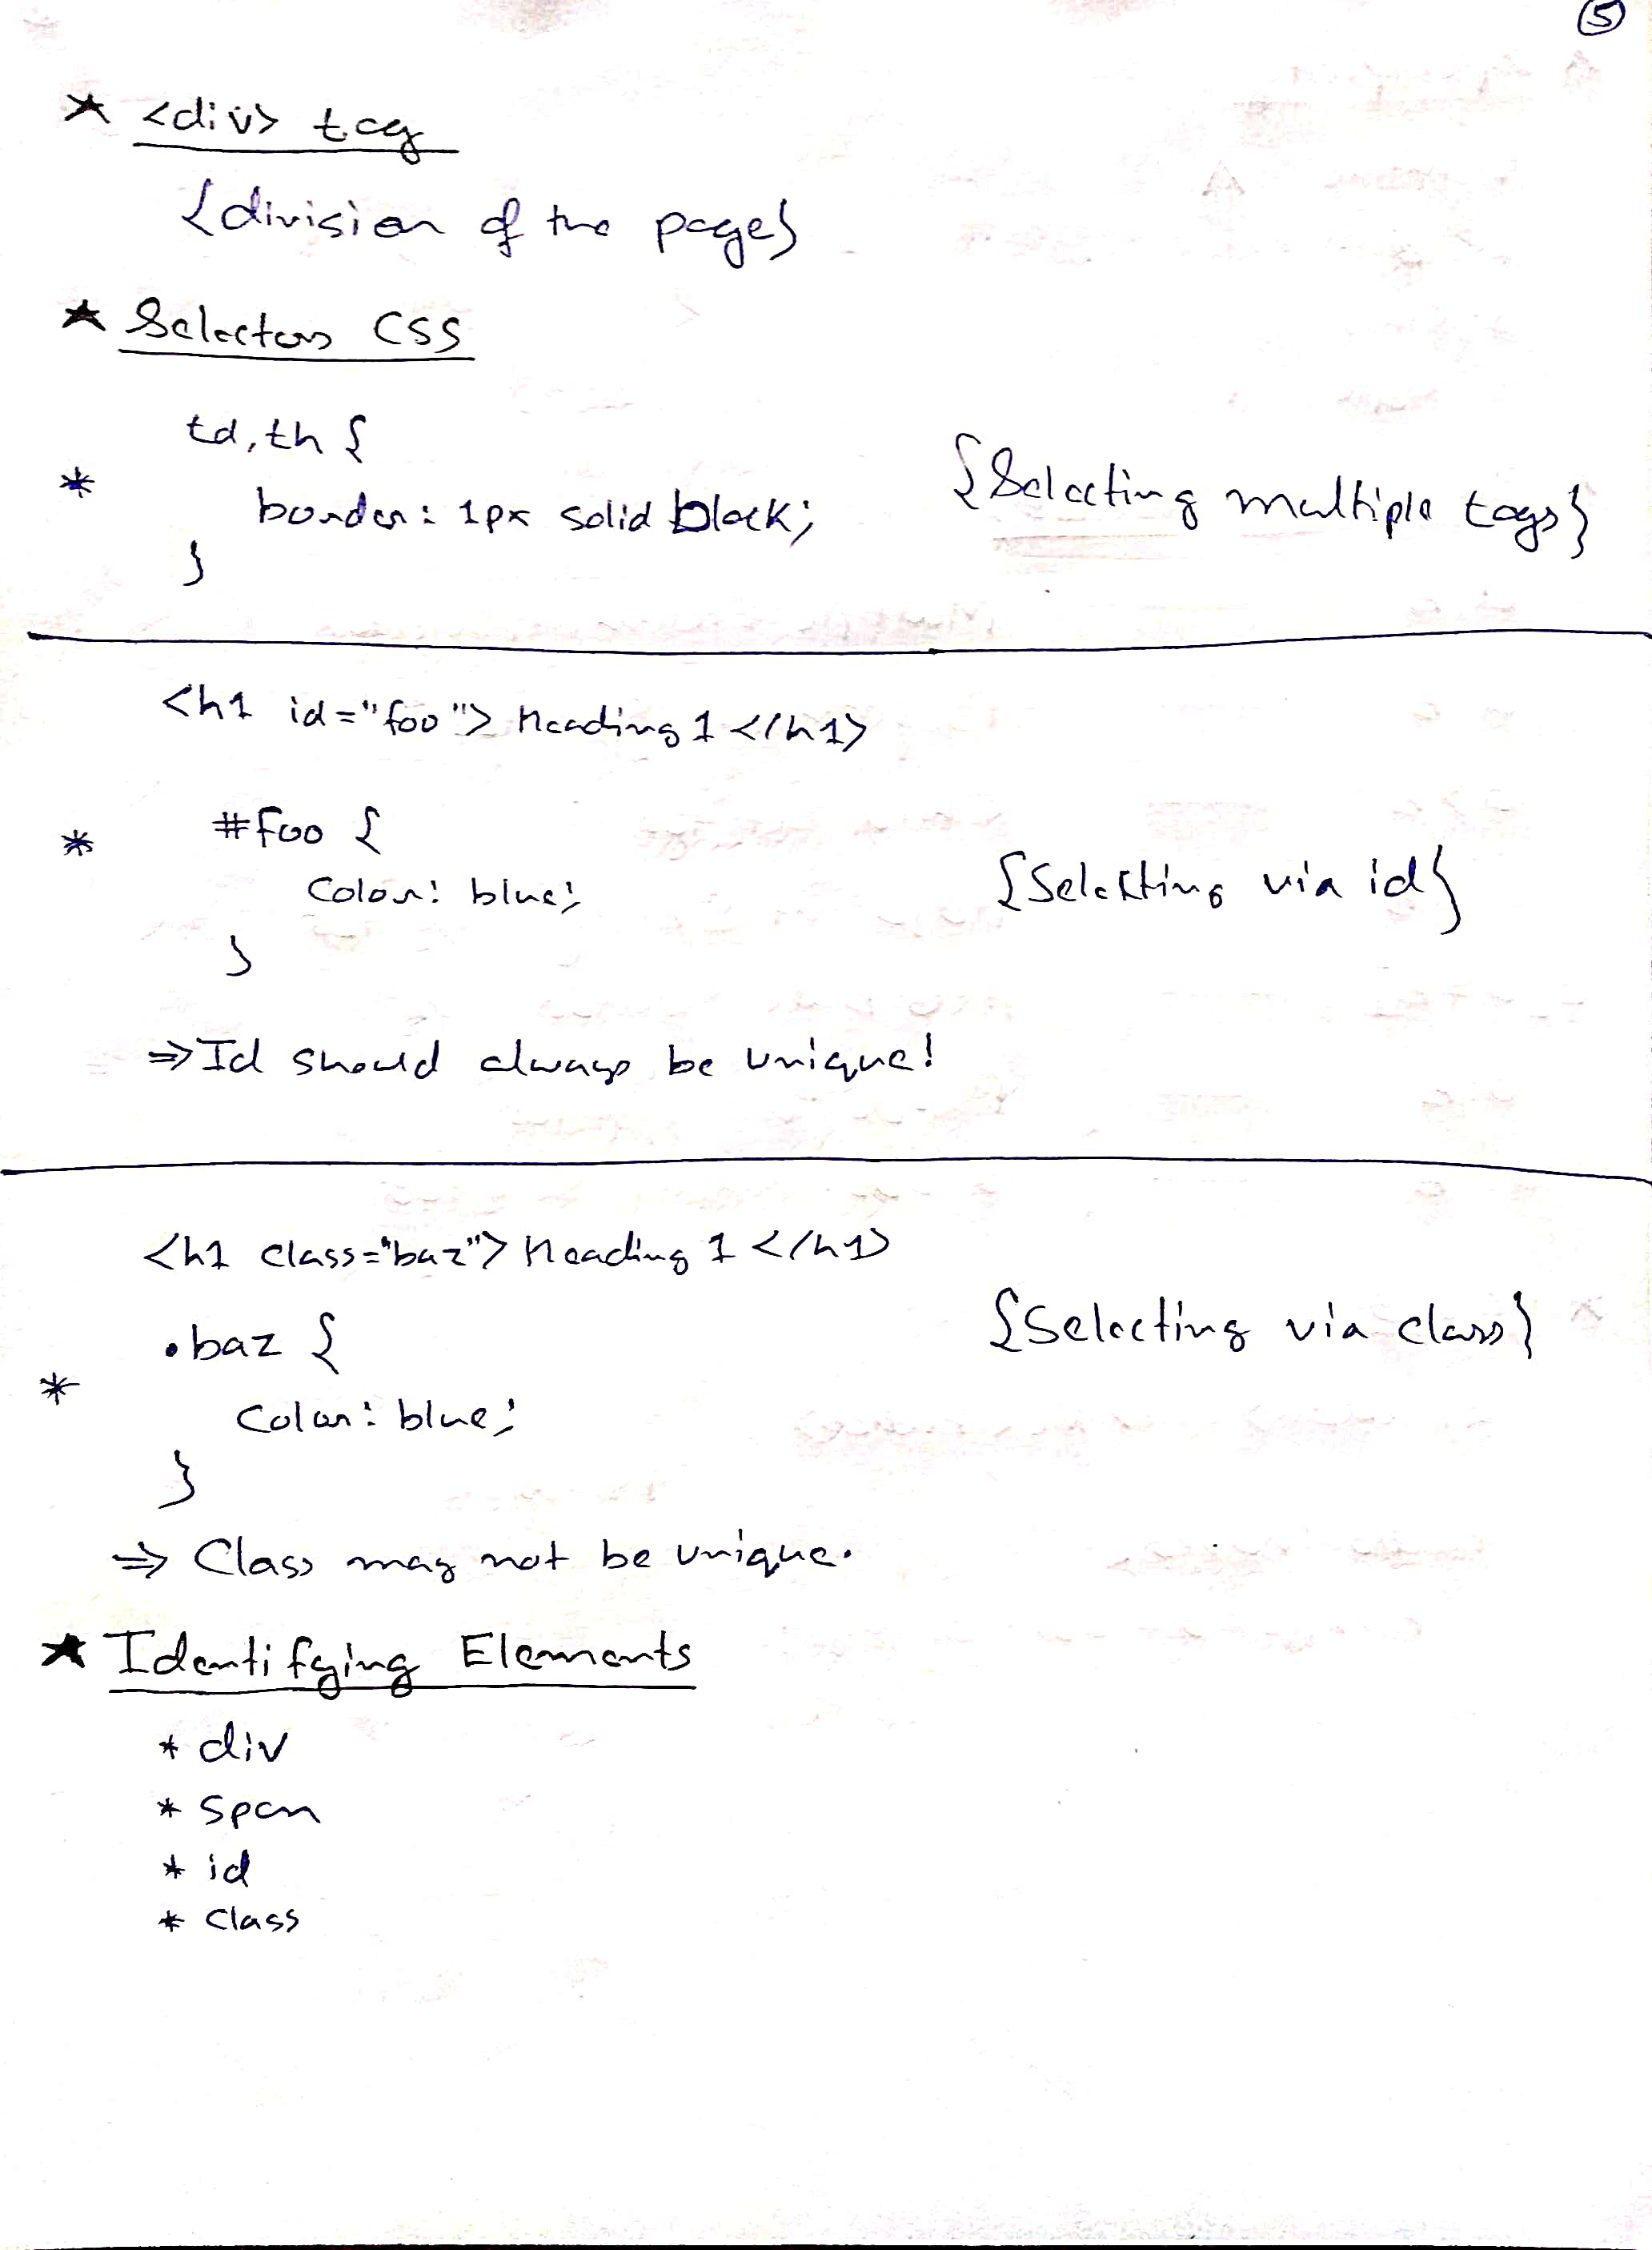 5
★ <div> tag
{division of the page}
★ Selectors CSS
td, th {
* border: 1px solid black; {Selecting multiple tags}
}
<h1 id="foo"> Heading 1 </h1>
* #foo {
color: blue; {Selecting via id}
}
⇒ Id should always be unique!
<h1 class="baz"> Heading 1 </h1>
.baz { {Selecting via class}
* color: blue;
}
⇒ Class may not be unique.
★ Identifying Elements
* div
* span
* id
* class